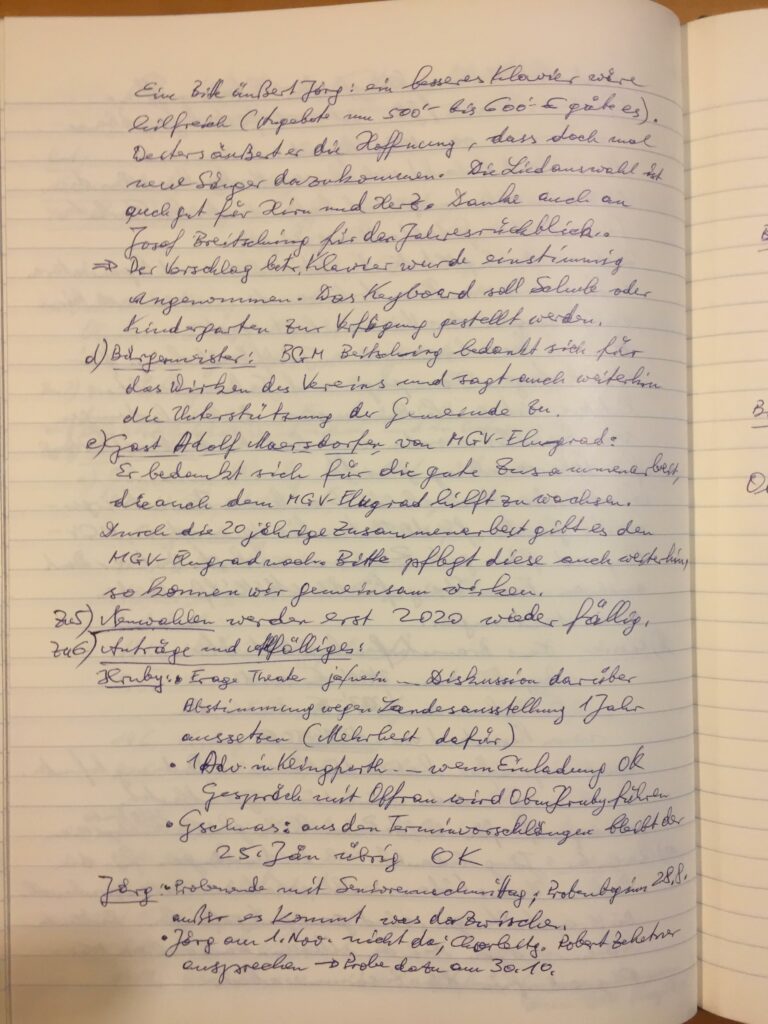 Eine Bitte äußert Jörg: ein besseres Klavier wäre
hilfreich (Angebote um 500'- bis 600'- € gäbe es).
Desters äußert er die Hoffnung, dass doch mal
neue Sänger dazukommen. Die Liedauswahl ist
auch gut für Hirn und Herz. Danke auch an
Josef Breitsching für den Jahresrückblick.
⇒ Der Vorschlag betr. Klavier wurde einstimmig
angenommen. Das Keyboard soll Schule oder
Kindergarten zur Verfügung gestellt werden.
d) Bürgermeister: BGM Beitsching bedankt sich für
das Wirken des Vereins und sagt auch weiterhin
die Unterstützung der Gemeinde zu.
e) Gast Adolf von MGV-
Er bedankt sich für die gute Zusammenarbeit,
die auch dem MGV- hilft zu wachsen.
Durch die 20 jährige Zusammenarbeit gibt es den
MGV- noch. Bitte pflegt diese auch weiterhin,
so können wir gemeinsam wirken.
Zu5) Neuwahlen werden erst 2020 wieder fällig.
Zu6) Anträge und Allfälliges:
Hruby: • Frage Theater ja/nein - Diskussion darüber
Abstimmung wegen Landesausstellung 1 Jahr
aussetzen (Mehrheit dafür)
• 1 Adv. in - wenn Einladung OK
Gespräch mit wird Obm Hruby führen
• Gschnas: aus den Terminvorschlängen bleibt der
25. Jän übrig OK
Jörg: • Probenende mit Seniorennachmittag; Probenbeginn 28.8.
außer es kommt was dazwischen.
• Jörg am 1. Nov. nicht da; Chorleitg. Robert
ansprechen → Probe dazu am 30.10.